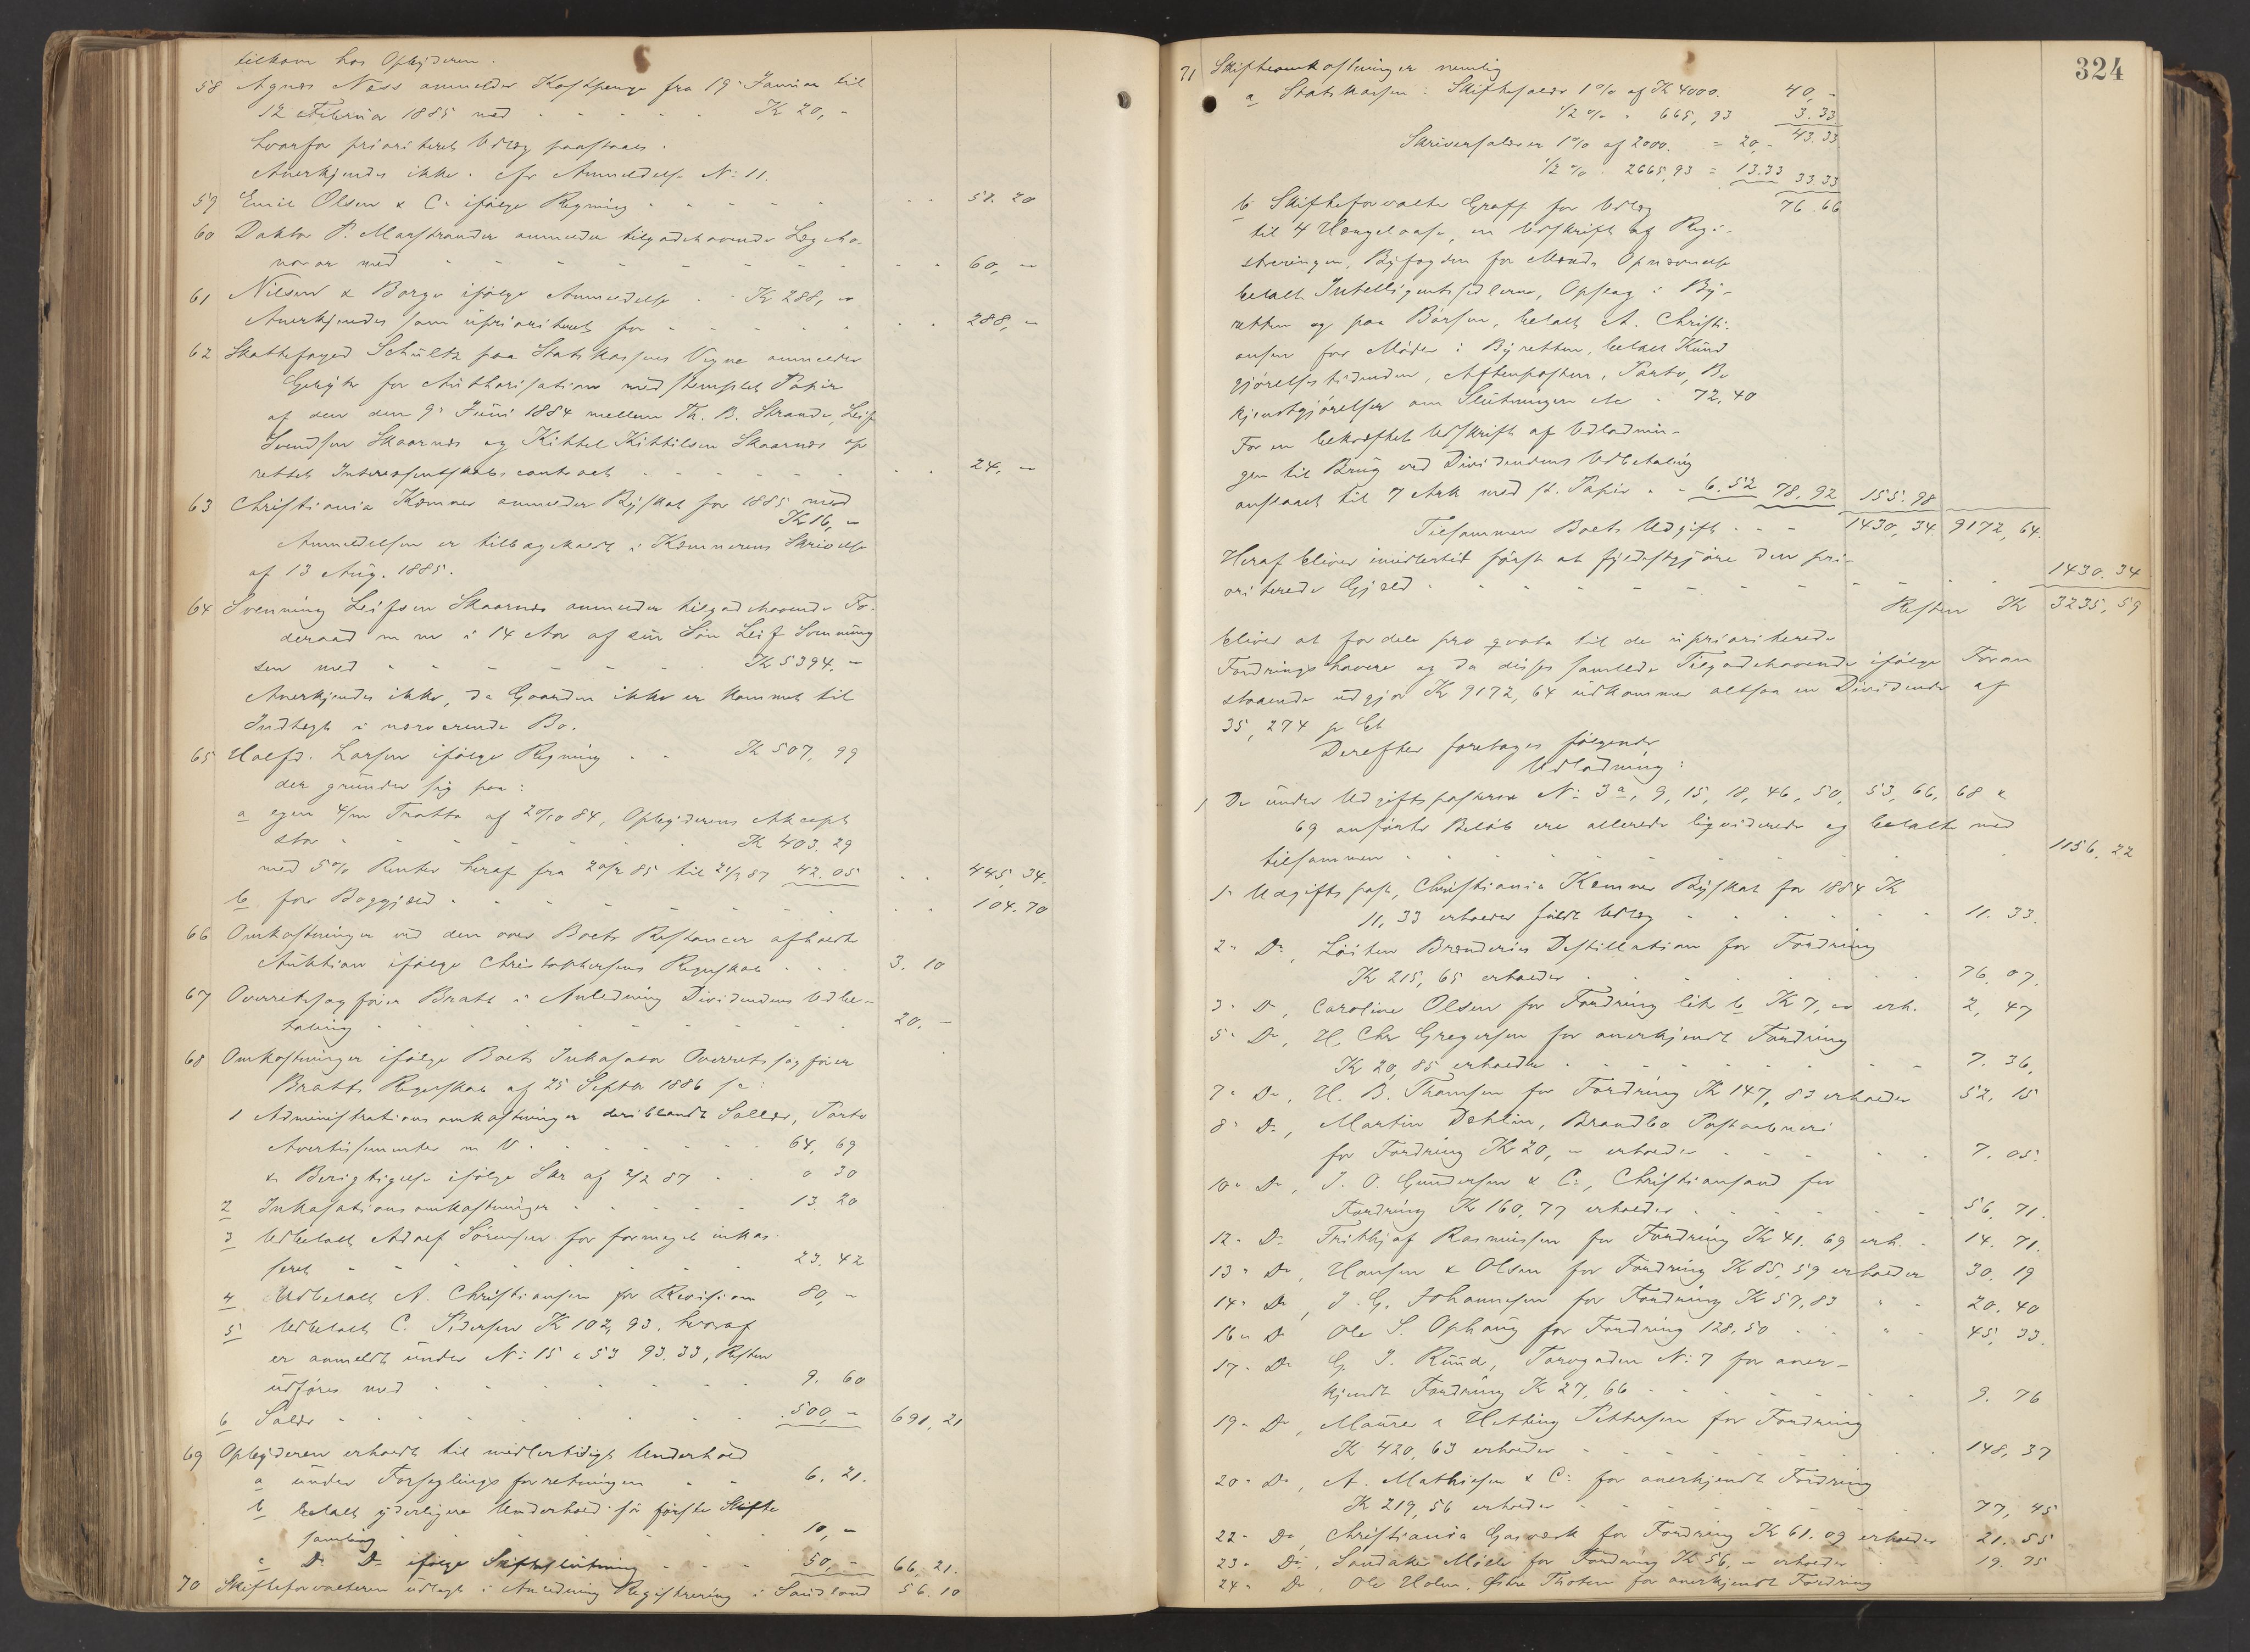 tilkom hos Opbyderen.
58 Agnes Næss anmelder Kostpenge fra 19 Januar til
12 Februar 1885 med - - - - Kr 20, -
hvorfor prioriteret Udlæg paastaaes.
Anerkjendes ikke. cfr Anmeldelse No 11.
59 Emil Olsen & Co ifølge Regning - - - - 58. 20
60 Doktor P. Marstrander anmelder tilgodehavende Lægeho-
norar med - - - - 60, -
61 Nilsen & Borge ifølge Anmeldelse - - Kr 288, -
Anerkjendes som uprioriteret for - - - - 288, -
62 Skattefoged Schultz paa Statskassens Vegne anmelder
Gebyhr for Authorisation med stemplet Papir
af den den 9de Juni 1884 mellem Th. B. Strande, Leif
Svendsen Skaarnes og Kittel Kittilsen Skaarnes op
rettet Interessentskabscontract - - - - 24, -
63 Christiania Kæmner anmelder Byskat for 1885 med
Kr 16, -
Anmeldelsen er tilbagekaldt i Kæmnerens Skrivelse
af 13 Aug. 1885.
64 Svenning Leifsen Skaarnes anmelder tilgodehavende Fo-
deraad m m i 14 Aar af sin Søn Leif Svenning
sen med - - - - Kr 5394. -
Anerkjendes ikke, da Gaarden ikke er kommet til
Indtægt i nærværende Bo.
65 Halfd. Larsen ifølge Regning - - Kr 507, 99
der grunder sig paa:
a egen 4/m Tratte af 20/10 84, Opbyderens Akcept
stor - - - - Kr 403. 29
med 5% Renter heraf fra 20/2 85 til 21/3 87 42. 05 - - 445, 34.
b for Boggjæld - - - - 104. 70
66 Omkostninger ved den over Boets Restancer afholdte
Auktion ifølge Christophersens Regnskab - - - 3. 10
67 Overretssagfører Bratt i Anledning Dividendens Udbe-
taling - - - - 20. -
68 Omkostninger ifølge Boets Inkasator Overretssagfører
Bratts Regnskab af 25 Septbr 1886 sc:
1 Administrationsomkostninger deriblandt Sallær, Porto
Avertissementer m V - - - - 64, 69
& Berigtigelse ifølge Skr af 2/2 87 - - 0 30
2 Inkasationsomkostninger - - - - 13. 20
3 Udbetalt Adolf Sørensen for formeget inkas
seret - - - - 23. 42
4 Udbetalt A. Christiansen for Revision 80, -
5 Udbetalt C. Pedersen Kr 102, 93. hvoraf
er anmeldt under No 15 & 53 93. 33, Resten
udføres med - - - - 9. 60
6 Salær - - - - 500, - 691, 21
69 Opbyderen erholdt til midlertidigt Underhold
a under Forseglingsforretningen - - 6. 21.
b betalt yderligere Underhold før første Skifte
samling - - - - 10, -
c Do Do ifølge Skifteslutning - - - 50, - 66, 21.
70 Skifteforvalteren udlagt i Anledning Registrering i Søndland 56. 10
324
71 Skifteomkostninger nemlig
a Statskassen: Skiftesalær 1% af Kr 4000. 40, -
1/2 % " 665, 93 3. 33
43. 33
Skriversalær 1% af 2000. = 20, -
1/2 % : 2665, 93 = 13.33 33.33
76. 66
b Skifteforvalter Graff for Udlæg
til 4 Hængelaase, en Udskrift af Regi-
streringen, Byfogden for Mænds Opnævnelse
betalt Intelligentssedlerne, Opslag i By-
retten og paa Børsen, betalt A. Christi-
ansen for Møder i Byretten, betalt Kund
gjørelsestidenden, Aftenposten, Porto, Be
kjendtgjørelser om Slutningen etc - 72, 40
For en bekræftet Udskrift af Udlodnin-
gen til Brug ved Dividendens Udbetaling
anslaaet til 7 Ark med st. Papir - - 6. 52 78, 92 155. 98
Tilsammen Boets Udgift - - - 1430, 34. 9172, 64.
Heraf bliver imidlertid først at fyldestgjøre den pri-
oriterede Gjæld - - - - 1430. 34
Resten Kr 3235, 59
bliver at fordele pro qvota til de uprioriterede
Fordringshavere og da disses samlede Tilgodehavende ifølge Foran
staaende udgjør Kr 9172, 64 udkommer altsaa en Dividende af
35, 274 p Ct
Derefter foretages følgende
Udlodning:
De under Udgiftsposterne No 3a, 9, 15, 18, 46, 50, 53, 66, 68 &
69 anførte Beløb ere allerede liqviderede og betalte med
tilsammen - - - - 1156, 22
1ste Udgiftspost, Christiania Kæmner Byskat for 1884 Kr
11, 33 erholder fuldt Udlæg - - - - 11. 33.
2- Do, Løiten Brænderies Destillation for Fordring
Kr 215, 65 erholder - - - - 76. 07.
3- Do, Caroline Olsen for Fordring litr b Kr 7, - erh. 2, 47
5- Do, H. Chr Gregersen for anerkjendt Fordring
Kr 20, 85 erholder - - - - 7. 36,
7- Do, H. B. Thomsen for Fordring Kr 147, 83 erholder 52, 15
8- Do, Martin Dehlin, Brandbo Postaabneri
for Fordring Kr 20, - erholder - - - - 7. 05.
10- Do, J. O. Gundersen & Co, Christianssand for
Fordring Kr 160, 77 erholder - - - - 56, 71.
12- Do Frithjof Rasmussen for Fordring Kr 41. 69 erh. - 14. 71.
13- Do, Hansen & Olsen for Fordring Kr 85, 59 erholder 30. 19
14- Do, J. G. Johannesen for Fordring Kr 57, 83 " - 20. 40
16- Do Ole S. Ophaug for Fordring 128, 50 - - " - 45, 33.
17- Do G. J. Ruud, Torvgaden No 7 for aner-
kjendt Fordring Kr 27, 66 - - - - 9. 76
19- Do, Maurer & Hetting Pettersen for Fordring
Kr 420, 63 erholder - - - - 148, 37
20- Do, A. Mathiesen & Co for anerkjendt Fordring
Kr 219, 56 erholder - - - - 77, 45
22- Do, Christiania Gasværk for Fordring Kr 61. 09 erholder 21. 55
23- Do, Sandaker Mølle for Fordring Kr 56, - erholder 19. 75
24- Do, Ole Holm, Østre Thoten for anerkjendt Fordring